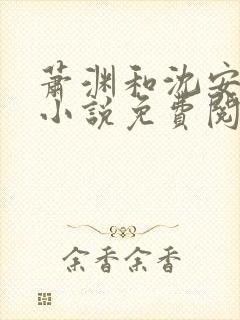 萧渊和沈安
小说免費閱
余香余香